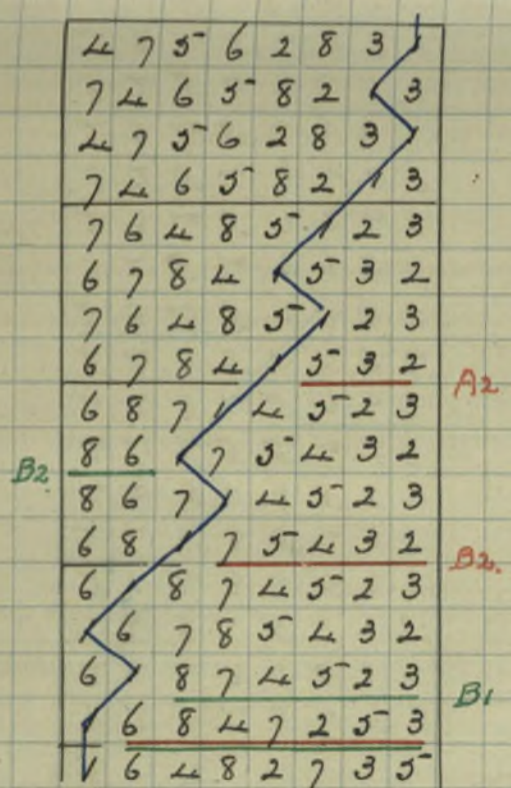 4 7 5 6 2 8 3 1
7 4 6 5 8 2 1 3
4 7 5 6 2 8 3 1
7 4 6 5 8 2 1 3
7 6 4 8 5 1 2 3
6 7 8 4 1 5 3 2
7 6 4 8 5 1 2 3
6 7 8 4 1 5 3 2 A2
6 8 7 1 4 5 2 3
B2 8 6 1 7 5 4 3 2
8 6 7 1 4 5 2 3
6 8 1 7 5 4 3 2 B2.
6 1 8 7 4 5 2 3
1 6 7 8 5 4 3 2
6 1 8 7 4 5 2 3 B1
1 6 8 4 7 2 5 3
1 6 4 8 2 7 3 5